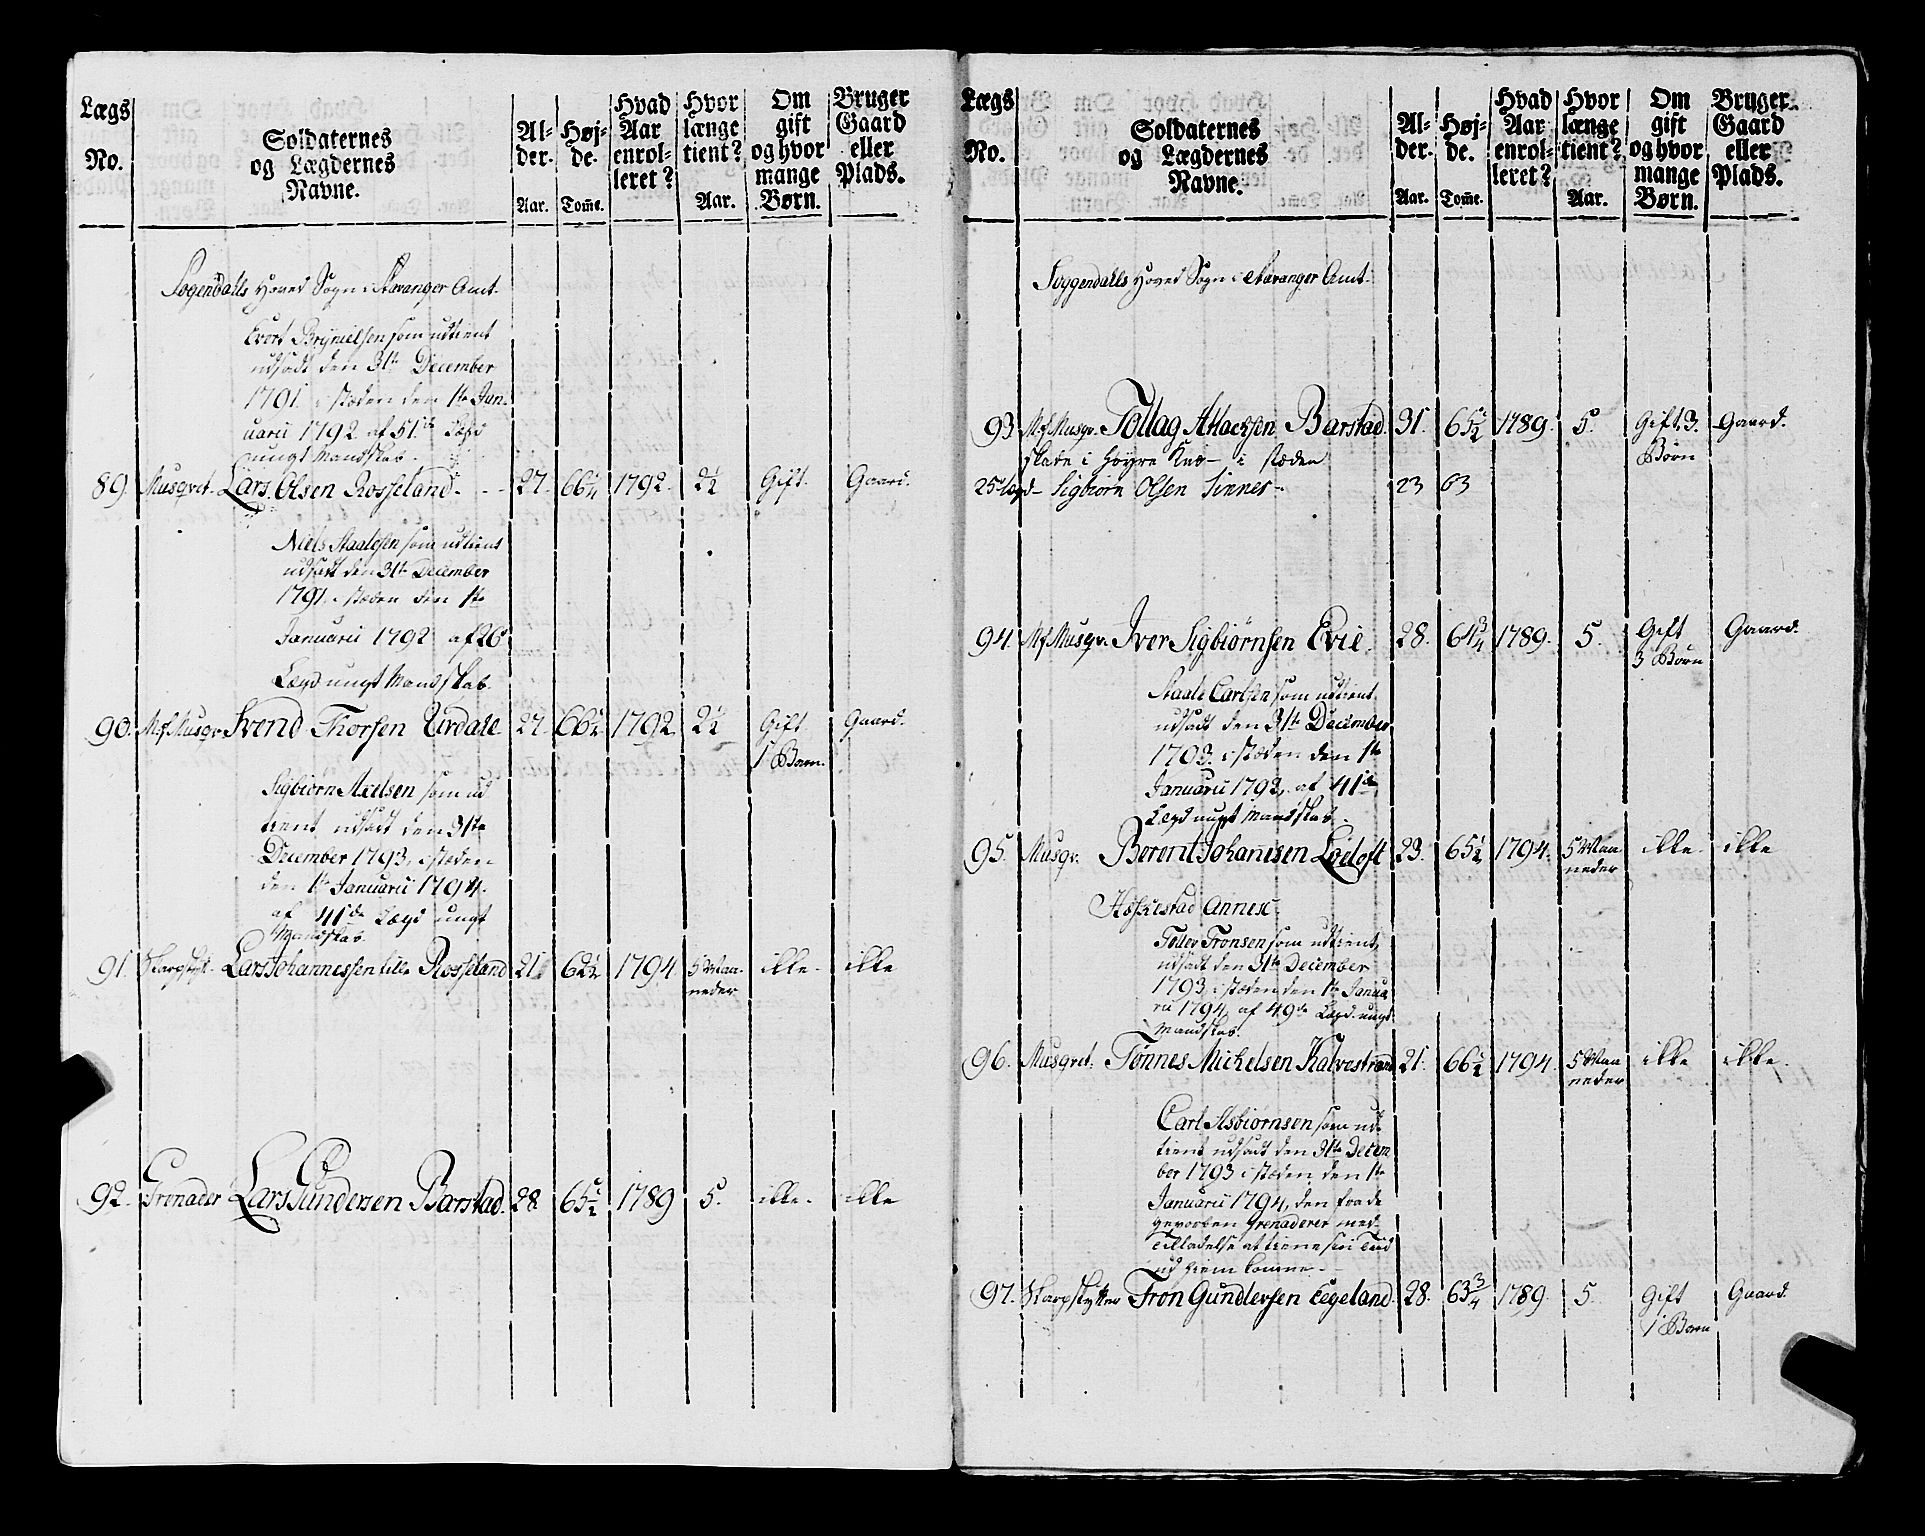 Lægs No. | Soldaternes og Lægdernes Navne. | Al-der. Aar. | Høj-de. Tom̅e. | Hvad Aar enrol-leret? | Hvor længe tient? Aar. | Om gift og hvor mange Børn. | Bruger Gaard eller Plads.
Sogendalls Hoved Sogn i Stavanger Amt.
Evert Brynielsen som udtient
udsadt den 31te December
1791. i stæden den 1te Jan-
uarii 1792 af 51de Lægd
ungt Mandskab.
89. Musqvet. Lars Olsen Rosseland. 27. 66¼ 1792. 2½ Gift. Gaard.
Niels Staalesen som udtient
udsadt den 31te December
1791. i stæden den 1te
Januarii 1792 af 26
Lægd ungt Mandskab.
90. M.f. Musqv. Svend Thorsen Urdale. 27. 66½ 1792 2½ Gift Gaard.
1 Barn.
Sigbiørn Axelsen som ud
tient udsadt den 31te
December 1793, i stæden
den 1te Januarii 1794.
af 41de Lægd ungt
Mandskab.
91. Skarpsk. Lars Johannessen lille Rosseland 21. 62½ 1794. 5 Maa ikke. ikke
neder
92. Grenader Lars Gundersen Barstad. 28. 65½ 1789 5. ikke. ikke
Lægs No. | Soldaternes og Lægdernes Navne. | Al-der. Aar. | Høj-de. Tom̅e. | Hvad Aar enrol-leret? | Hvor længe tient? Aar. | Om gift og hvor mange Børn. | Bruger Gaard eller Plads.
Soggendalls Hoved Sogn i Stavanger Amt.
93. M.f. Musqv. Tollag Attacksen Barstad. 31. 65½ 1789. 5. Gift. 3. Gaard.
skade i høyre Knæ – i stæden Børn
25de Lægd – Sigbiørn Olsen Sinnes. 23 63
94. M.f. Musqv. Iver Sigbiørnsen Evie. 28. 64¾ 1789. 5. Gift Gaard.
3 Børn
Staale Carlsen som udtient
udsadt den 31te December
1793. i stæden den 1te
Januarii 1793, af 41de
Lægd ungt Mandskab.
95. Musqv. Berent Johannsen Løeloft 23. 65½ 1794. 5 Maa ikke. ikke
neder
Hæskestad Annex.
Toller Tronsen som udtient,
udsadt den 31te December
1793, i stæden den 1te Janua
rii 1794, af 49de Lægd. ungt
Mandskab.
96. Musqvet. Tønnes Mickelsen Kalvestrand 21. 66½ 1794. 5 Maa ikke ikke.
neder
Carl Asbiørnsen som ud-
tient udsadt den 31te Decem
ber 1793 i stæden den 1te
Januarii 1794, den fra de
gevorben Grenaderer med
Tilladelse at tiene sin Tiid
ud hiem komne.
97. Skarpskytter Tron Gundersen Eegeland. 28. 63¾ 1789. 5. Gift Gaard.
1 Barn